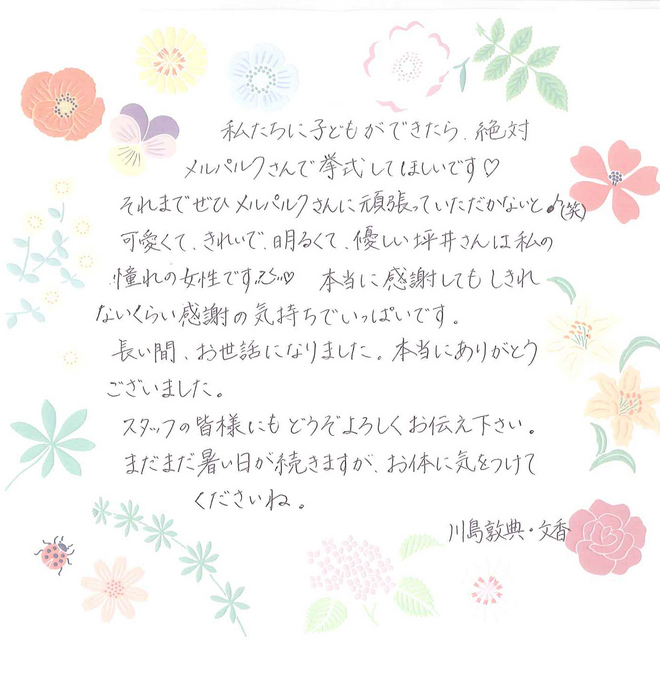 私たちに子どもができたら、絶対
メルパルクさんで挙式してほしいです♡
それまでぜひメルパルクさんに頑張っていただかないと♪(笑)
可愛くて、きれいで、明るくて、優しい坪井さんは私の
憧れの女性です♡ 本当に感謝してもしきれ
ないくらい感謝の気持ちでいっぱいです。
長い間、お世話になりました。本当にありがとう
ございました。
スタッフの皆様にもどうぞよろしくお伝え下さい。
まだまだ暑い日が続きますが、お体に気をつけて
くださいね。
川島敦典・文香